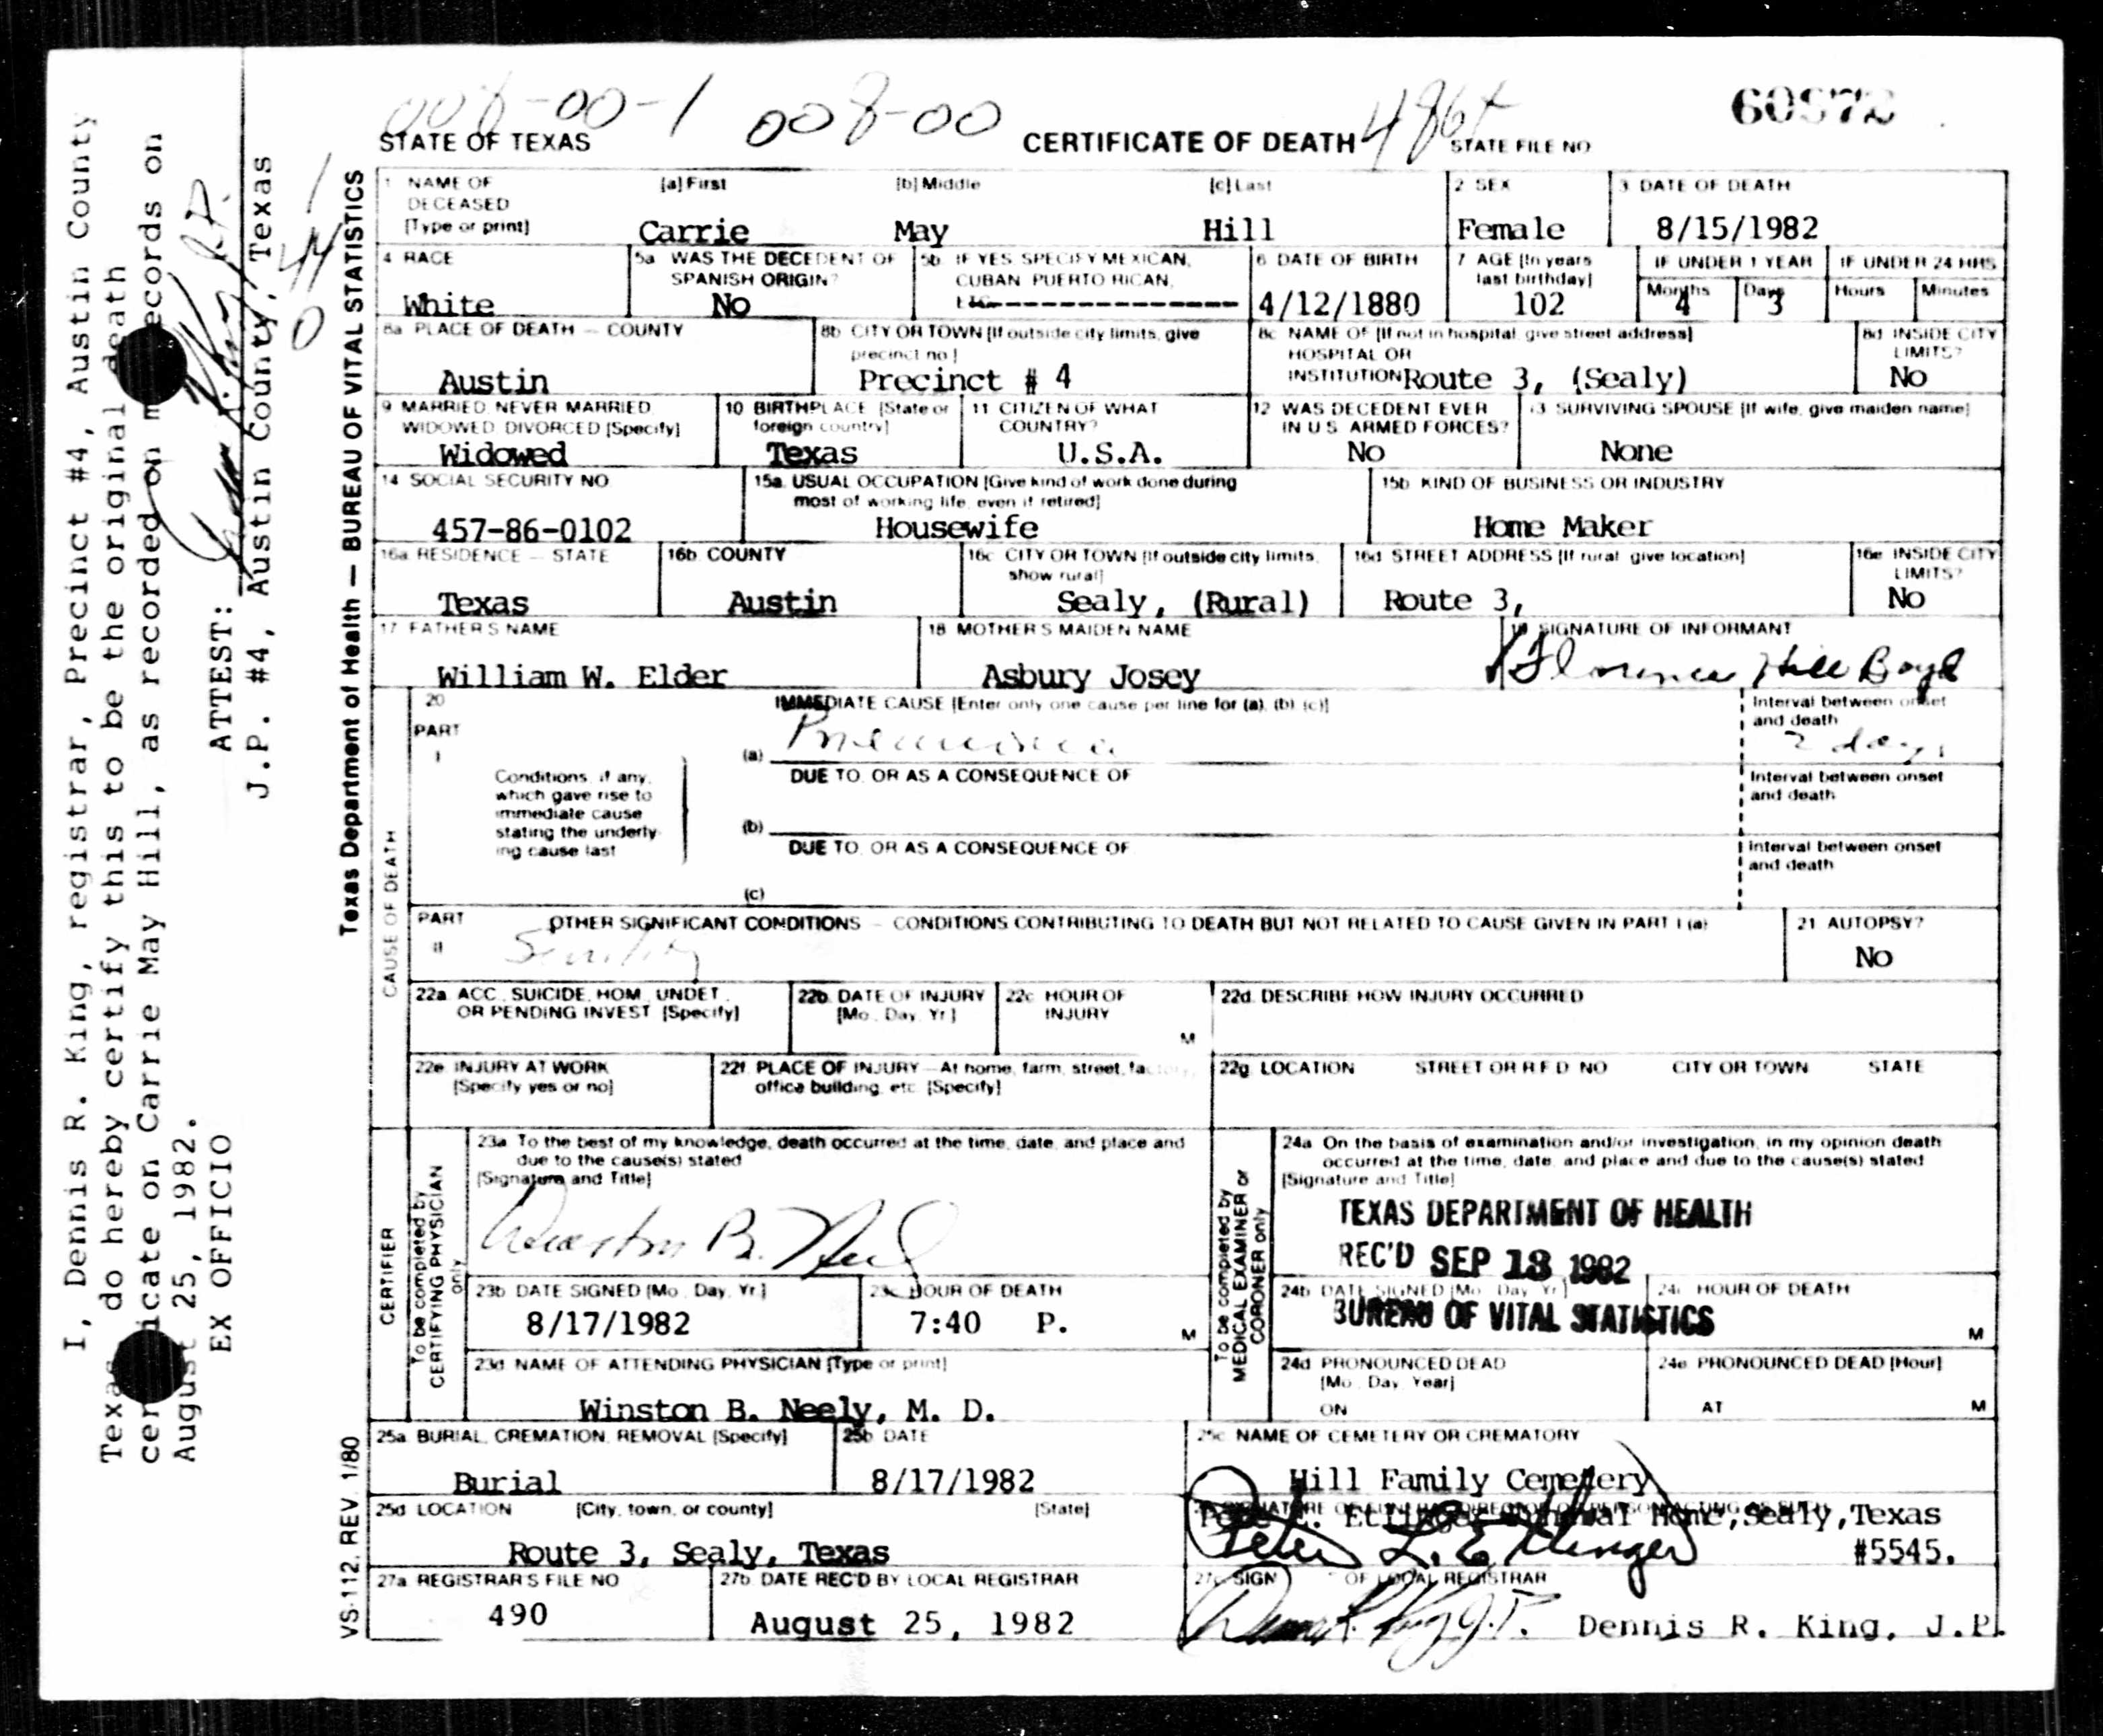 008-00-1 008-00 486+ 60972
STATE OF TEXAS CERTIFICATE OF DEATH STATE FILE NO
1 NAME OF DECEASED [Type or print] [a] First [b] Middle [c] Last 2 SEX 3 DATE OF DEATH
Carrie May Hill Female 8/15/1982
4 RACE 5a WAS THE DECEDENT OF SPANISH ORIGIN? 5b IF YES, SPECIFY MEXICAN, CUBAN PUERTO RICAN, ETC 6 DATE OF BIRTH 7 AGE [In years last birthday] IF UNDER 1 YEAR IF UNDER 24 HRS
Months Days Hours Minutes
White No --------------- 4/12/1880 102 4 3
8a PLACE OF DEATH – COUNTY 8b CITY OR TOWN [If outside city limits, give precinct no] 8c NAME OF [If not in hospital, give street address] HOSPITAL OR INSTITUTION 8d INSIDE CITY LIMITS?
Austin Precinct # 4 Route 3, (Sealy) No
9 MARRIED, NEVER MARRIED, WIDOWED, DIVORCED [Specify] 10 BIRTHPLACE [State or foreign country] 11 CITIZEN OF WHAT COUNTRY? 12 WAS DECEDENT EVER IN U.S. ARMED FORCES? 13 SURVIVING SPOUSE [If wife, give maiden name]
Widowed Texas U.S.A. No None
14 SOCIAL SECURITY NO 15a. USUAL OCCUPATION [Give kind of work done during most of working life, even if retired] 15b KIND OF BUSINESS OR INDUSTRY
457-86-0102 Housewife Home Maker
16a RESIDENCE – STATE 16b COUNTY 16c CITY OR TOWN [If outside city limits, show rural] 16d STREET ADDRESS [If rural, give location] 16e INSIDE CITY LIMITS?
Texas Austin Sealy, (Rural) Route 3, No
17 FATHER'S NAME 18 MOTHER'S MAIDEN NAME 19 SIGNATURE OF INFORMANT
William W. Elder Asbury Josey Florence Hill Boyd
CAUSE OF DEATH
20 PART I IMMEDIATE CAUSE [Enter only one cause per line for (a), (b), (c)] Interval between onset and death
(a) Pneumonia 2 days
Conditions, if any, which gave rise to immediate cause stating the underlying cause last
DUE TO, OR AS A CONSEQUENCE OF Interval between onset and death
(b)
DUE TO, OR AS A CONSEQUENCE OF Interval between onset and death
(c)
PART II OTHER SIGNIFICANT CONDITIONS – CONDITIONS CONTRIBUTING TO DEATH BUT NOT RELATED TO CAUSE GIVEN IN PART I (a) 21 AUTOPSY?
Senility No
22a ACC., SUICIDE, HOM., UNDET., OR PENDING INVEST. [Specify] 22b. DATE OF INJURY [Mo., Day, Yr.] 22c HOUR OF INJURY M 22d DESCRIBE HOW INJURY OCCURRED
22e INJURY AT WORK [Specify yes or no] 22f. PLACE OF INJURY – At home, farm, street, factory, office building, etc. [Specify] 22g. LOCATION STREET OR R.F.D. NO CITY OR TOWN STATE
CERTIFIER
To be completed by CERTIFYING PHYSICIAN only
23a To the best of my knowledge, death occurred at the time, date, and place and due to the cause(s) stated
[Signature and Title]
Winston B. Neely
23b DATE SIGNED [Mo., Day, Yr.] 23c HOUR OF DEATH
8/17/1982 7:40 P. M
23d NAME OF ATTENDING PHYSICIAN [Type or print]
Winston B. Neely, M. D.
To be completed by MEDICAL EXAMINER or CORONER only
24a On the basis of examination and/or investigation, in my opinion death occurred at the time, date, and place and due to the cause(s) stated
[Signature and Title]
TEXAS DEPARTMENT OF HEALTH
REC'D SEP 13 1982
BUREAU OF VITAL STATISTICS
24b DATE SIGNED [Mo., Day, Yr.] 24c HOUR OF DEATH M
24d PRONOUNCED DEAD [Mo., Day, Year] ON 24e PRONOUNCED DEAD [Hour] AT M
25a BURIAL, CREMATION, REMOVAL [Specify] 25b DATE 25c NAME OF CEMETERY OR CREMATORY
Burial 8/17/1982 Hill Family Cemetery
25d LOCATION [City, town, or county] [State] SIGNATURE OF FUNERAL DIRECTOR OR PERSON ACTING AS SUCH
Route 3, Sealy, Texas Pete L. Etlinger Funeral Home, Sealy, Texas
Peter L. Etlinger #5545.
27a REGISTRAR'S FILE NO 27b DATE REC'D BY LOCAL REGISTRAR 27c SIGN OF LOCAL REGISTRAR
490 August 25, 1982 Dennis R. King J.P. Dennis R. King, J.P.
Texas Department of Health — BUREAU OF VITAL STATISTICS
VS-112, REV. 1/80
I, Dennis R. King, registrar, Precinct #4, Austin County
Texas do hereby certify this to be the original death
certificate on Carrie May Hill, as recorded on my records on
August 25, 1982.
EX OFFICIO ATTEST:
J.P. #4, Austin County, Texas